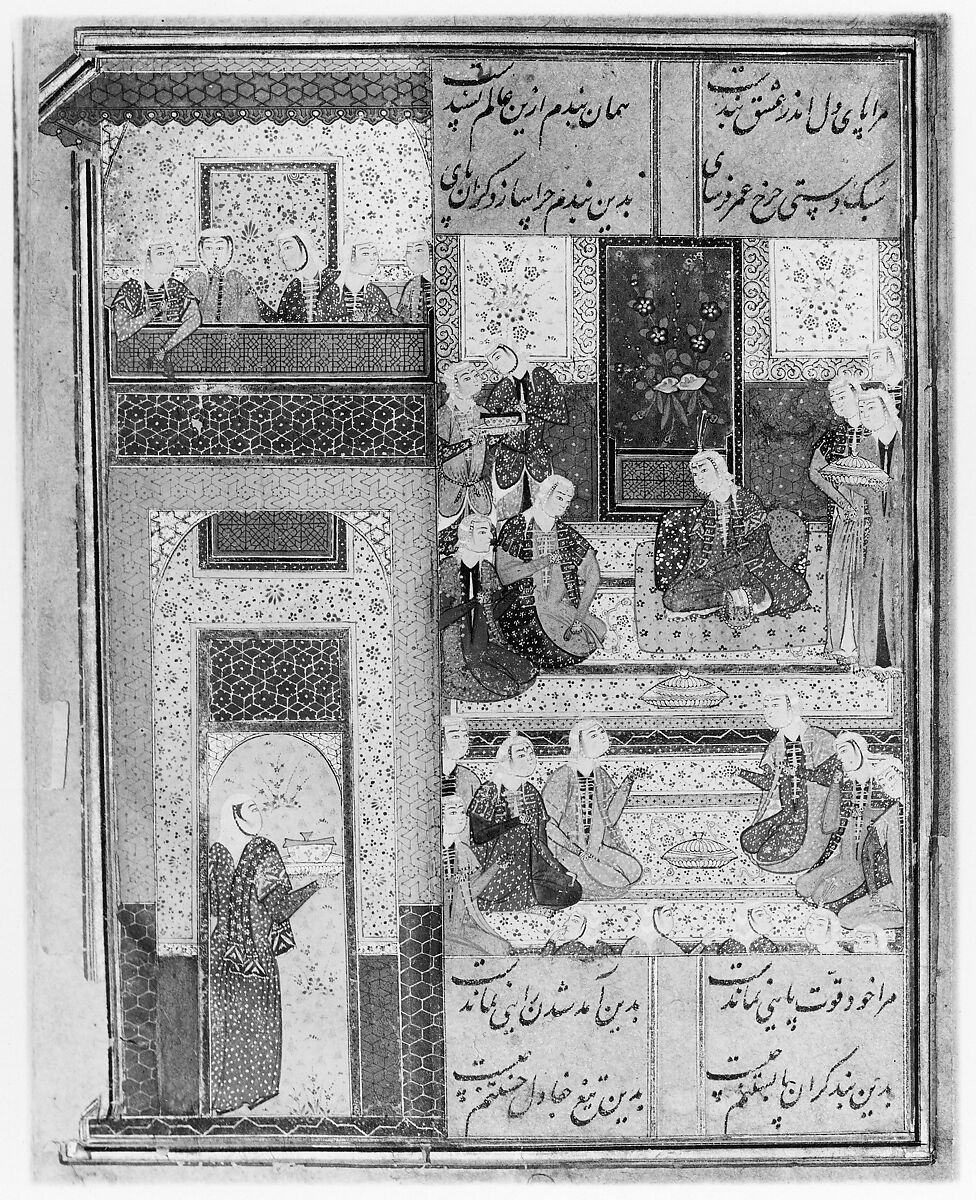 مرا پای دل اندر عشق بندست همان بندم ازین عالم پسندست
سبک دستی چرخ عمر فرسای بدین بندم چرا سازد گران پای
مرا خود قوت پایی نماندست بدین آمد شدن رایی نماندست
بدین بند گران پا بستنم چیست بدین تیغ جفا دل خستنم چیست